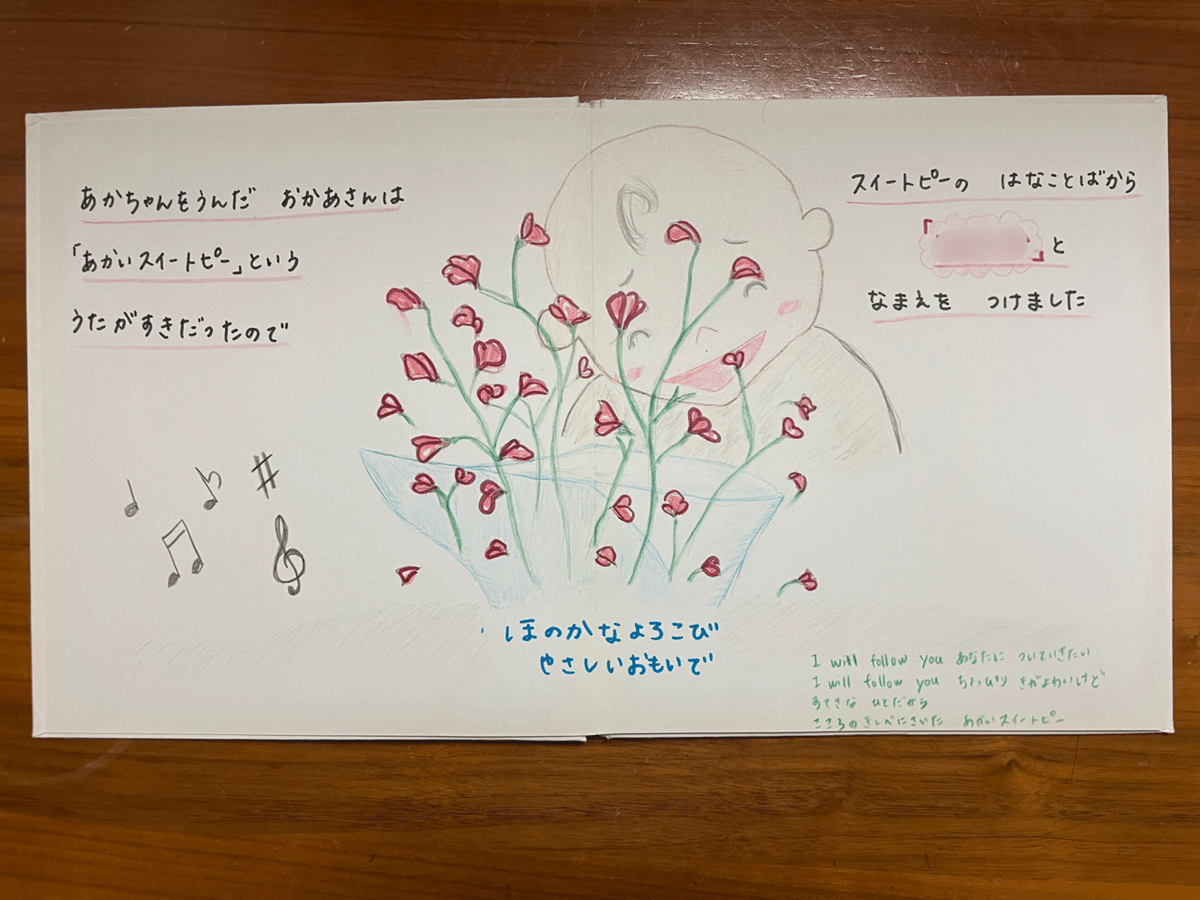 あかちゃんをうんだ おかあさんは
「あかいスイートピー」という
うたがすきだったので
スイートピーの はなことばから
「 」と
なまえを つけました
ほのかなよろこび
やさしいおもいで
I will follow you あなたに ついていきたい
I will follow you ちょっぴり きがよわいけど
すてきな ひとだから
こころのきしべにさいた あかいスイートピー